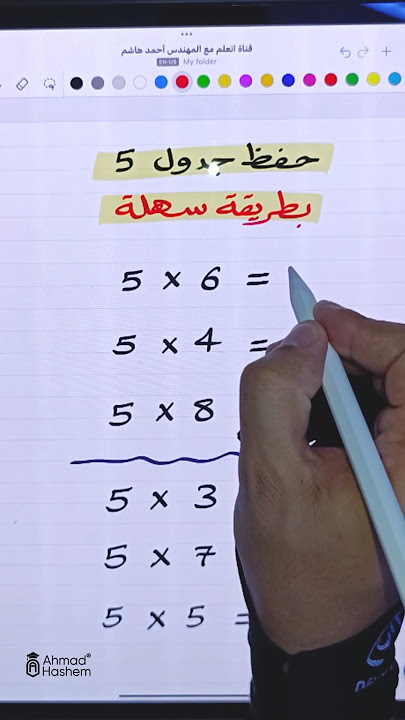 قناة اتعلم مع المهندس أحمد هاشم
EN-US My folder
حفظ جدول 5
بطريقة سهلة
5 × 6 =
5 × 4 =
5 × 8
5 × 3
5 × 7
5 × 5 =
Ahmad®
Hashem